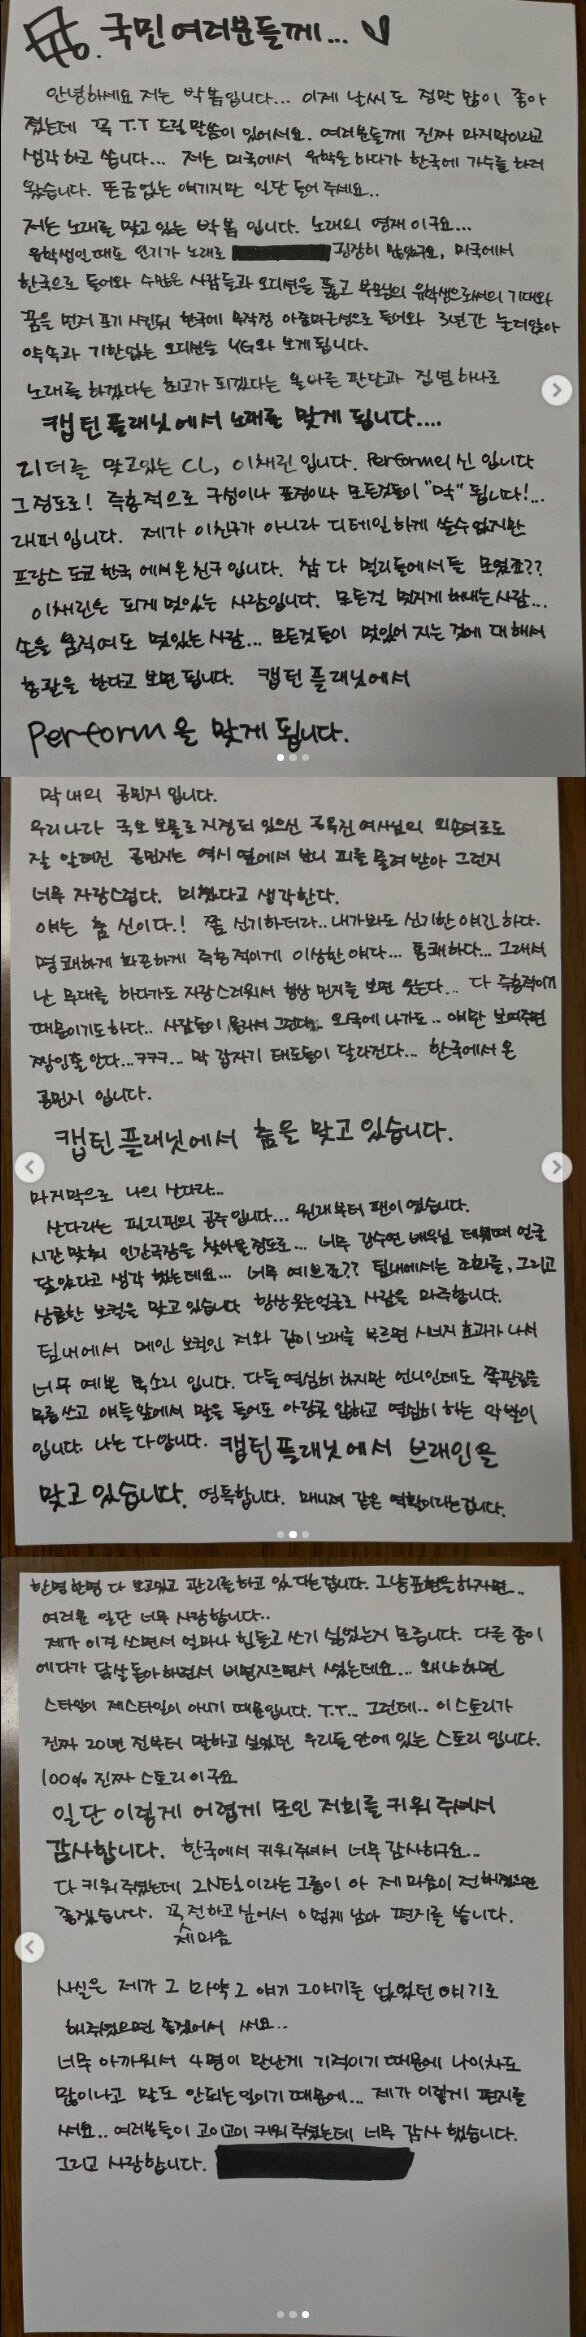 국민여러분들께...
안녕하세요 저는 박봄입니다... 이제 날씨도 정말 많이 좋아
졌는데 꼭 T.T 드릴 말씀이 있어서요. 여러분들께 진짜 마지막이라고
생각하고 씁니다... 저는 미국에서 유학을 하다가 한국에 가수를 하러
왔습니다. 뜬금없는 얘기지만 일단 들어주세요..
저는 노래를 맞고있는 박봄 입니다. 노래의 영재이구요...
유학생인때도 인기가 노래로 굉장히 많았구요, 미국에서
한국으로 들어와 수많은 사람들과 오디션을 뚫고 부모님의 유학생으로서의 기대와
꿈을 먼저 포기 시킨뒤 한국에 무작정 아줌마근성으로 들어와 3년간 눌러앉아
약속과 기한없는 오디션을 YG와 보게됩니다.
노래를 하겠다는 최고가 되겠다는 올바른 판단과 집념 하나로
캡틴플래닛에서 노래를 맞게 됩니다....
리더를 맞고있는 CL, 이채린입니다. Perform의 신 입니다
그정도로! 즉흥적으로 구성이나 표정이나 모든것들이 "막" 됩니다!...
래퍼입니다. 제가 이친구가 아니라 디테일하게 쓸수없지만
프랑스 도쿄 한국 에서 온 친구입니다. 참 다 멀리들에서들 모였죠??
이채린은 되게 멋있는 사람입니다. 모든걸 멋지게 해내는 사람...
손을 움직여도 멋있는 사람... 모든것들이 멋있어 지는 것에 대해서
총괄을 한다고 보면 됩니다. 캡틴 플래닛에서
Perform을 맞게 됩니다.
막내의 공민지 입니다.
우리나라 국보 보물로 지정되 있으신 공옥진 여사님의 외손녀로도
잘 알려진 공민지는 역시 옆에서 보니 피를 물려 받아 그런지
너무 자랑스럽다. 미쳤다고 생각한다.
얘는 춤 신이다.! 쫌 신기하더라.. 내가봐도 신기한 얘긴 하다.
명쾌하게 화끈하게 즉흥적이게 이상한 얘다... 통쾌하다... 그래서
난 무대를 하다가도 자랑스러워서 항상 민지를 보면 웃는다... 다 즉흥적이기
때문이기도하다.. 사람들이 몰라서 그런다.. 외국에 나가도.. 얘만 보여주면
짱인줄 안다...ㅋㅋㅋ... 막 갑자기 태도들이 달라진다... 한국에서 온
공민지 입니다.
캡틴플래닛에서 춤을 맞고 있습니다.
마지막으로 나의 산다라...
산다라는 필리핀의 공주입니다... 원래부터 팬이였습니다.
시간맞춰 인간극장을 찾아볼 정도로... 너무 강수연 배우님 데뷔때 얼굴
닮았다고 생각 했는데요... 너무 예쁘죠?? 팀내에서는 조화를, 그리고
상큼한 보컬을 맞고 있습니다 항상웃는얼굴로 사람을 마주합니다.
팀내에서 메인 보컬인 저와 같이 노래를 부르면 시너지 효과가 나서
너무 예쁜 목소리 입니다. 다들 열심히 하지만 언니인데도 쪽팔림을
무릅쓰고 얘들앞에서 말을 들어도 아랑곳 않하고 열심히 하는 악발이
입니다. 나는 다압니다. 캡틴플래닛에서 브래인을
맞고 있습니다. 영특합니다. 매니저 같은 역할이라는겁니다.
한명한명 다 보고있고 관리를 하고 있다는 겁니다. 그냥표현을하자면...
여러분 일단 너무 사랑합니다..
제가 이걸 쓰면서 얼마나 힘들고 쓰기 싫었는지 모릅니다. 다른 종이
에다가 닭살돋아하면서 비명지르면서 썼는데요... 왜냐하면
스타일이 제스타일이 아니기 때문입니다. T.T... 그런데.. 이 스토리가
진짜 20년 전부터 말하고 싶었던 우리들 안에 있는 스토리 입니다.
100% 진짜 스토리 이구요
일단 이렇게 어렵게 모인 저희를 키워 주셔서
감사합니다. 한국에서 키워주셔서 너무 감사하구요...
다 키워주셨는데 2NE1이라는 그룹이 아 제 마음이 전해졌으면
좋겠습니다. 꼭 전하고 싶어서 이렇게 남아 편지를 씁니다.
제마음
사실은 제가 그 마약 그 얘기 그얘기를 없었던 얘기로
해주셨으면 좋겠어서 써요...
너무 아까워서 4명이 만난게 기적이기 때문에 나이차도
많이나고 말도 안되는 일이기 때문에... 제가 이렇게 편지를
써요.. 여러분들이 고이고이 키워주셨는데 너무 감사했습니다.
그리고 사랑합니다.